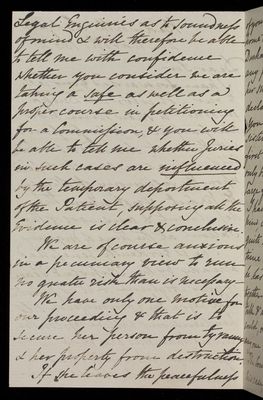 Legal Enquiries as to soundness
of mind & will therefore be able
to tell me with confidence
whether you consider we are
taking a safe as well as a
proper course in petitioning
for a Commission, & you will
be able to tell me whether Juries
in such cases are influenced
by the temporary deportment
of the Patient, supposing all the
Evidence is clear & conclusive.
We are of course anxious
in a pecuniary view to run
no greater risk than is necessary
We have only one motive for
our proceeding & that is to
secure her person from tyranny
& her property from destruction.
If she leaves the peacefulness